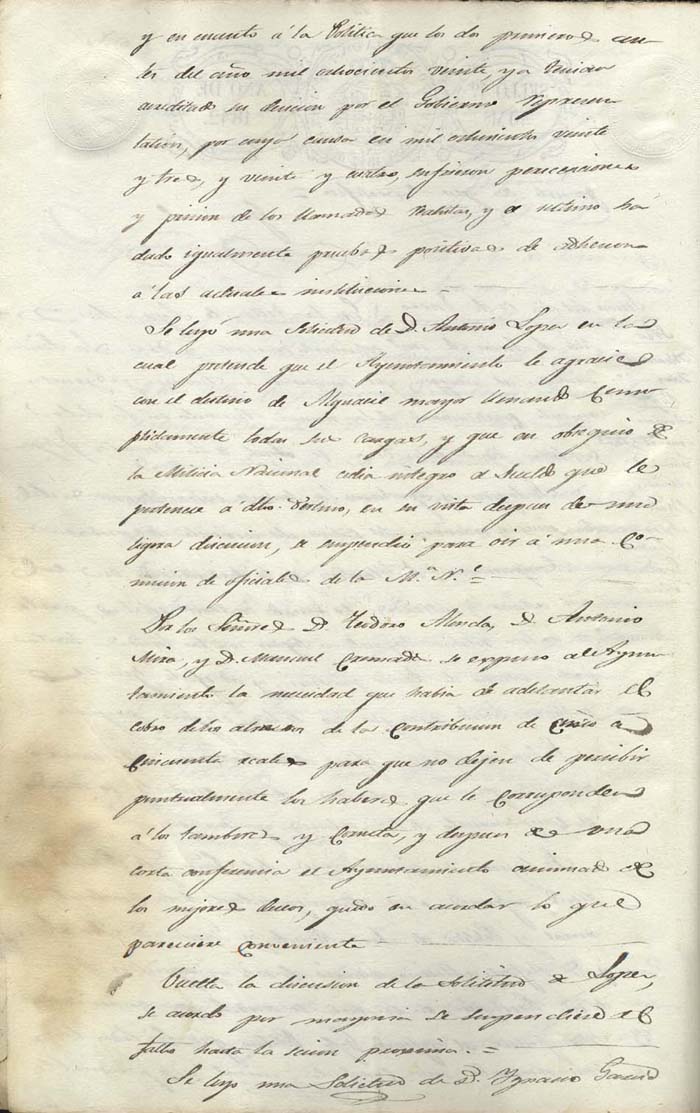 y en cuanto á la Politica que los dos primeros an-
tes del año mil ochocientos veinte, ya tenian
acreditada su decision por el Gobierno representa-
tativo, por cuya causa en mil ochocientos veinte
y tres, y veinte y cuatro, sufrieron persecuciones
y pricion de los llamados realistas, y el ultimo há
dado igualmente pruebas positivas de adhecion
á las actuales instituciones.
Se leyó una Solicitud de D. Antonio Lopez en la
cual pretende que el Ayuntamiento le agracie
con el destino de Alguacil mayor llenando cum-
plidamente todas sus cargas, y que en obsequio de
la Milicia Nacional cedia integro el sueldo que le
pertenece á dho. destino, en su vista despues de una
ligera discucion, se suspendió para oir á una Co-
micion de oficiales de la M.ª N.l =
Por los Señores D. Teodoro Alenda, D. Antonio
Mira, y D. Manuel Cremades se expuso al Ayun-
tamiento la necesidad que habia de adelantar el
cobro de los atrasos de la Contribucion de cinco á
Cincuenta reales para que no dejen de percibir
puntualmente los haberes que le corresponden
á los tambores y Corneta, y despues de una
corta conferencia el Ayuntamiento animado de
los mejores deceos, quedó en acordar lo que
pareciere conveniente
Vuelta la discusion de la Solicitud de Lopez,
se acordó por mayoria se suspendiese el
fallo hasta la secion procsima. =
Se leyo una Solicitud de D. Ygnacio Garcia